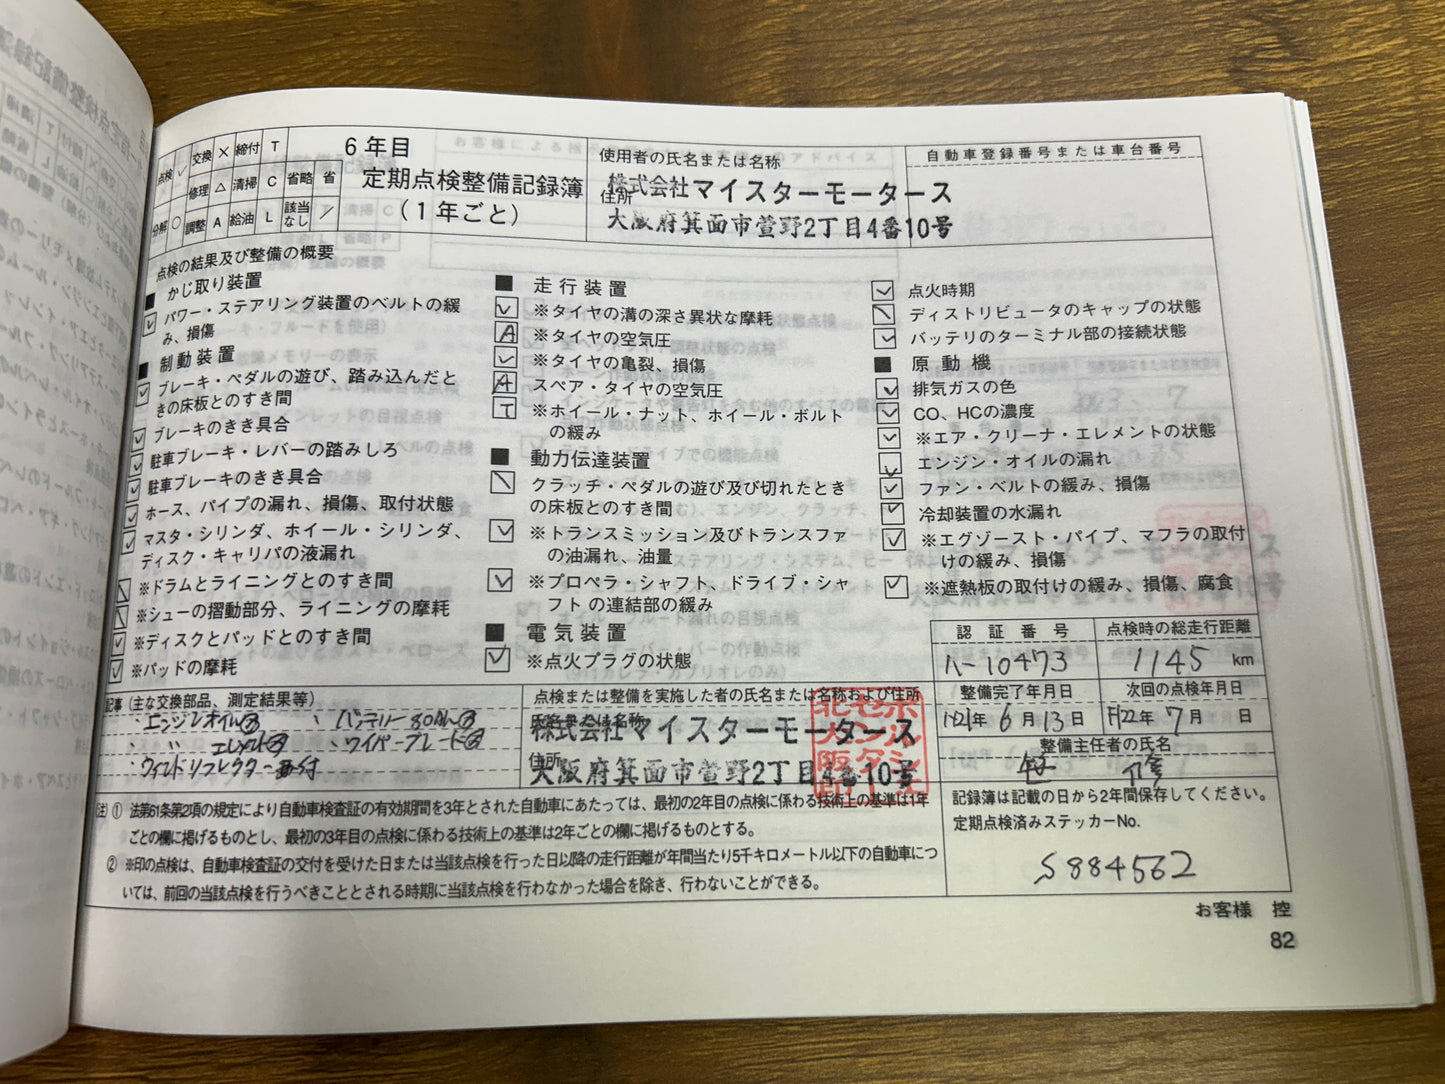 点検 ✓ 交換 × 締付 T
修理 △ 清掃 C 省略 省
分解 ○ 調整 A 給油 L 該当なし ／
6年目
定期点検整備記録簿
(1年ごと)
使用者の氏名または名称
株式会社マイスターモータース
住所
大阪府箕面市萱野2丁目4番10号
自動車登録番号または車台番号
点検の結果及び整備の概要
■ かじ取り装置
✓ パワー・ステアリング装置のベルトの緩
み、損傷
■ 制動装置
✓ ブレーキ・ペダルの遊び、踏み込んだと
きの床板とのすき間
✓ ブレーキのきき具合
✓ 駐車ブレーキ・レバーの踏みしろ
✓ 駐車ブレーキのきき具合
✓ ホース、パイプの漏れ、損傷、取付状態
✓ マスタ・シリンダ、ホイール・シリンダ、
ディスク・キャリパの液漏れ
※ドラムとライニングとのすき間
※シューの摺動部分、ライニングの摩耗
✓ ※ディスクとパッドとのすき間
✓ ※パッドの摩耗
■ 走行装置
✓ ※タイヤの溝の深さ異状な摩耗
A ※タイヤの空気圧
✓ ※タイヤの亀裂、損傷
A スペア・タイヤの空気圧
T ※ホイール・ナット、ホイール・ボルト
の緩み
■ 動力伝達装置
クラッチ・ペダルの遊び及び切れたとき
の床板とのすき間
✓ ※トランスミッション及びトランスファ
の油漏れ、油量
✓ ※プロペラ・シャフト、ドライブ・シャ
フトの連結部の緩み
■ 電気装置
✓ ※点火プラグの状態
✓ 点火時期
ディストリビュータのキャップの状態
✓ バッテリのターミナル部の接続状態
■ 原動機
✓ 排気ガスの色
✓ CO、HCの濃度
✓ ※エア・クリーナ・エレメントの状態
✓ エンジン・オイルの漏れ
✓ ファン・ベルトの緩み、損傷
✓ 冷却装置の水漏れ
✓ ※エグゾースト・パイプ、マフラの取付
けの緩み、損傷
✓ ※遮熱板の取付けの緩み、損傷、腐食
認証番号
点検時の総走行距離
ハ-10473
1145 km
整備完了年月日
次回の点検年月日
年 6月 13日
年 7月 日
整備主任者の氏名
記事 (主な交換部品、測定結果等)
・エンジンオイル交 ・バッテリー80Ah交
・〃 エレメント交 ・ワイパーブレード交
・ウィンドリフレクター 付
点検または整備を実施した者の氏名または名称および住所
氏名または名称
株式会社マイスターモータース
住所
大阪府箕面市萱野2丁目4番10号
ポルシェ
センター
北大阪
(注) ① 法第61条第2項の規定により自動車検査証の有効期間を3年とされた自動車にあたっては、最初の2年目の点検に係わる技術上の基準は1年
ごとの欄に掲げるものとし、最初の3年目の点検に係わる技術上の基準は2年ごとの欄に掲げるものとする。
② ※印の点検は、自動車検査証の交付を受けた日または当該点検を行った日以降の走行距離が年間当たり5千キロメートル以下の自動車につ
いては、前回の当該点検を行うべきこととされる時期に当該点検を行わなかった場合を除き、行わないことができる。
記録簿は記載の日から2年間保存してください。
定期点検済みステッカーNo.
S884562
お客様 控
82